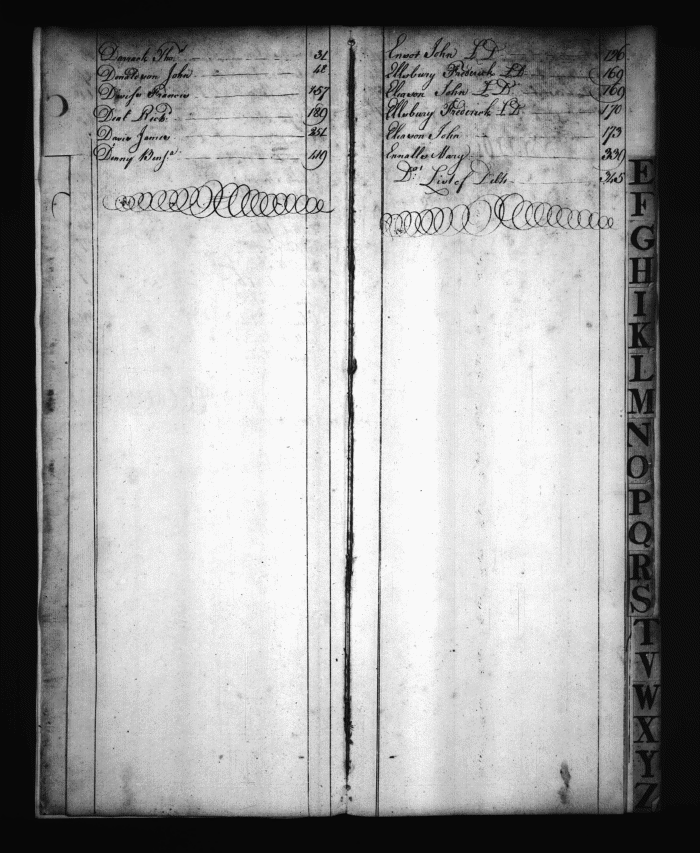 Darrach Tho.s 31
Donaldson John 42
Dwiss Francis 157
Dent Rich.d 189
Davis James 251
Denny Benj.a 419
Ennot John L D 126
Ellsbury Frederick L D 169
Eleason John L D 169
Ellsbury Frederick L D 170
Eleason John 173
Ennalls Mary 339
D.o List of Debts 345
E
F
G
H
I
K
L
M
N
O
P
Q
R
S
T
V
W
X
Y
Z